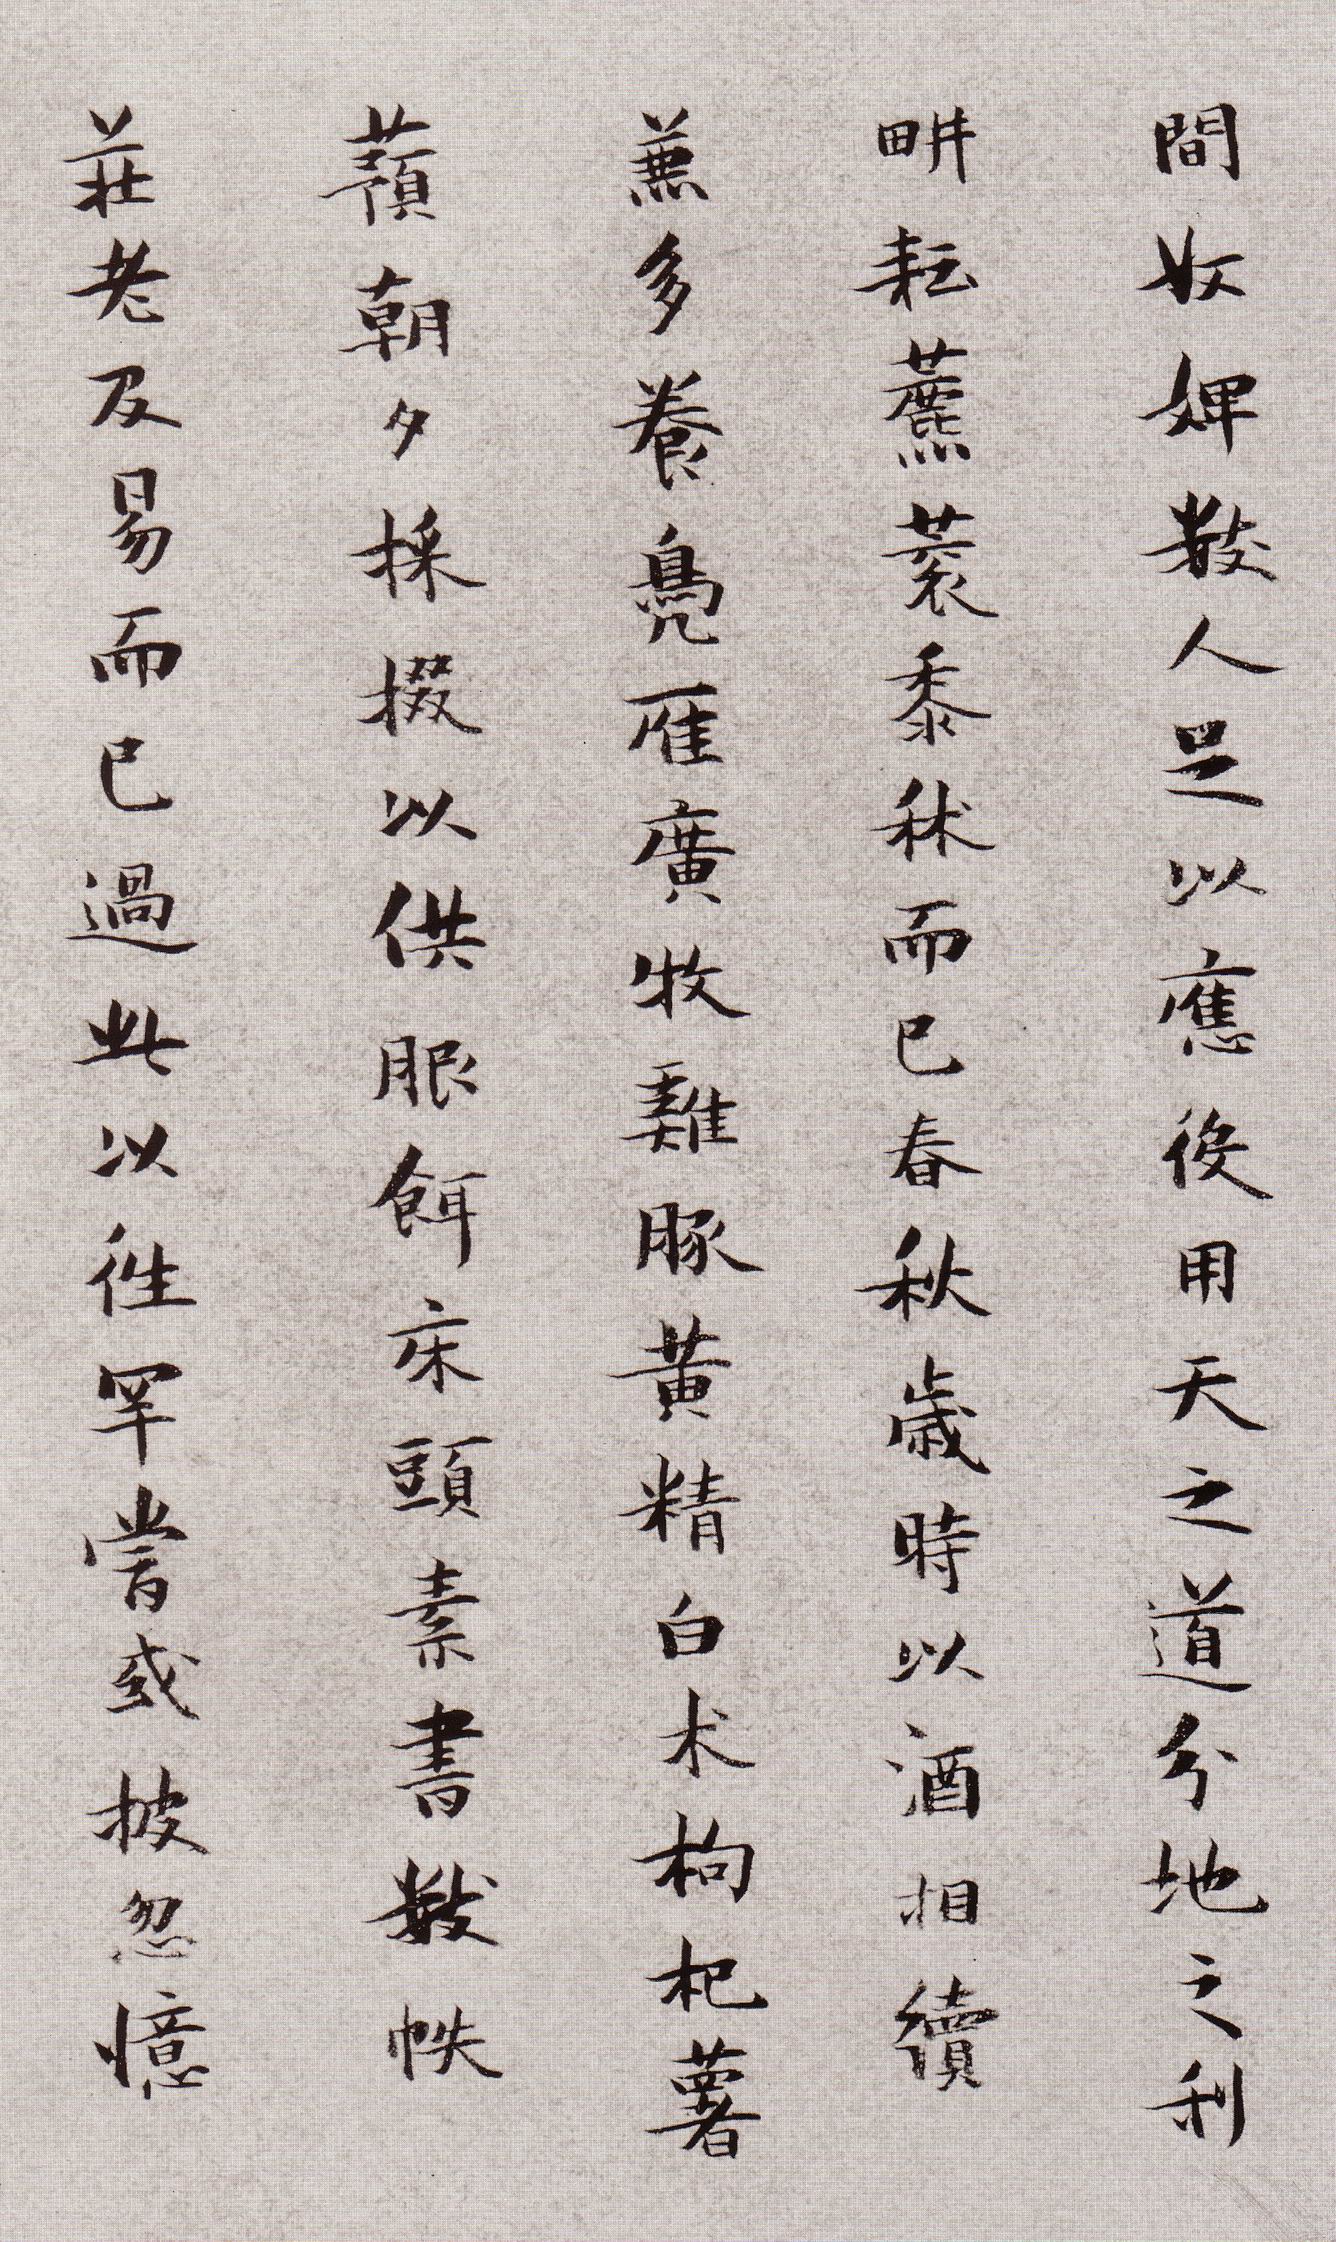 間奴婢數人足以應役用天之道分地之利
畊耘藨蔉黍秫而已春秋歲時以酒相續
兼多養鳧雁廣牧雞豚黃精白朮枸杞薯
蕷朝夕採掇以供服餌床頭素書數帙
莊老及易而已過此以往罕嘗或披忽憶